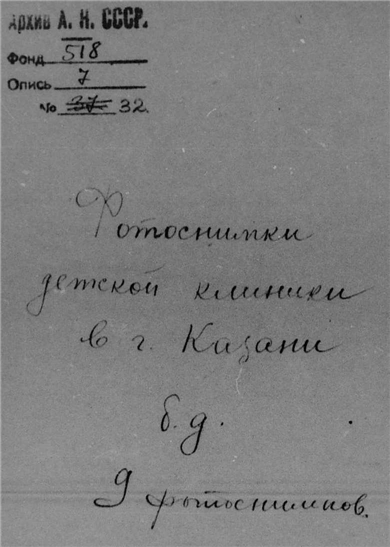 Архив А. Н. СССР.
Фонд 518
Опись 7
№ 37 32.
Фотоснимки
детской клиники
в г. Казани
б.д.
9 фотоснимков.